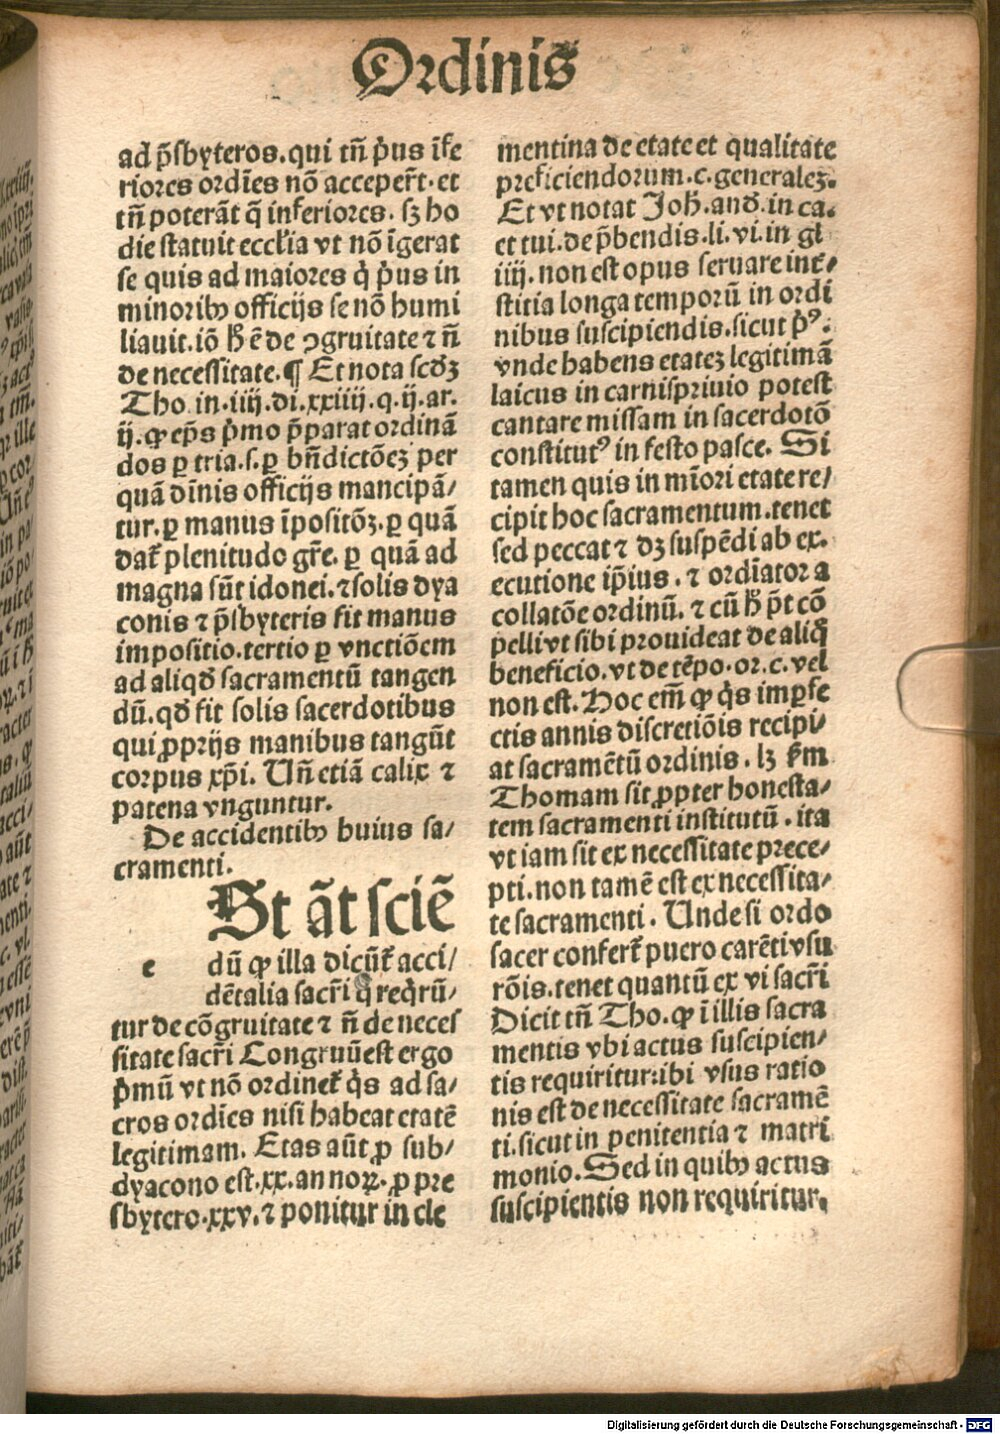 Ordinis
ad p̄sbyteros.qui tn̄ p̓us īfe
riores ordīes nō acceper̄t.et
tn̄ poterāt q̄ inferiores. sȝ ho
die statuit eccl'ia vt nō īgerat
se quis ad maiores q̇ p̓us in
minoribꝰ officijs se nō humi
liauit.iō h̄ ē de ꝯgruitate ⁊ n̄
de necessitate.¶ Et nota scd'ȝ
Tho in.iiij.di.xxiiij.q.ij.ar.
ij.ꝙ ep̄s p̓mo p̄parat ordinā
dos ꝑ tria.s.ꝑ bn̄dictōeȝ per
quā dīnis officijs mancipā/
tur.ꝑ manus īpositōȝ.ꝑ quā
dat᷑ plenitudo gr̄e. ꝑ quā ad
magna sūt idonei.⁊solis dya
conis ⁊ p̄sbyteris fit manus
impositio.tertio ꝑ vnctiōem
ad aliqd' sacramentū tangen
dū.qd' fit solis sacerdotibus
qui ꝓprijs manibus tangūt
corpus xp̄i. Un̄ etiā calix ⁊
patena vnguntur.
De accidentibꝰ huius sa/
cramenti.
e St āt sciē
dū ꝙ illa dicūt᷑ acci/
dētalia sacr̄i q̄ reqrū/
tur de cōgruitate ⁊ n̄ de neces
sitate sacr̄i Congruū est ergo
p̓mū vt nō ordinet᷑ q̇s ad sa/
cros ordīes nisi habeat etatē
legitimam. Etas aūt ꝓ sub/
dyacono est.xx.annoꝝ. ꝓ pre
sbytero.xxv.⁊ ponitur in cle
mentina de etate et qualitate
preficiendorum.c.generaleȝ.
Et vt notat Joh̄.and'.in ca.
et tui.de p̄bendis.li.vi.in gl
iiij.non est opus seruare int̄/
stitia longa temporū in ordi
nibus suscipiendis.sicut p̓ꝰ.
vnde habens etateȝ legitimā
laicus in carnispriuio potest
cantare missam in sacerdotō
constitutꝰ in festo pasce. Si
tamen quis in mīori etate re/
cipit hoc sacramentum.tenet
sed peccat ⁊ dȝ suspēdi ab ex.
ecutione ip̄ius.⁊ ordīator a
collatōe ordinū.⁊ cū h̄ p̄t cō
pelli vt sibi prouideat de aliq̄
beneficio.vt de tēpo.or.c.vel
non est. Hoc em̄ ꝙ q̇s imꝑfe
ctis annis discretiōis recipi/
at sacramētū ordinis. lȝ s̄m
Thomam sit ꝓpter honesta/
tem sacramenti institutū.ita
vt iam sit ex necessitate prece/
pti.non tamē est ex necessita/
te sacramenti. Unde si ordo
sacer confert᷑ puero carēti vsu
rōis.tenet quantū ex vi sacr̄i
Dicit tn̄ Tho.ꝙ ī illis sacra
mentis vbi actus suscipien/
tis requiritur:ibi vsus ratio
nis est de necessitate sacramē
ti.sicut in penitentia ⁊ matri
monio. Sed in quibꝰ actus
suscipientis non requiritur.
Digitalisierung gefördert durch die Deutsche Forschungsgemeinschaft - DFG